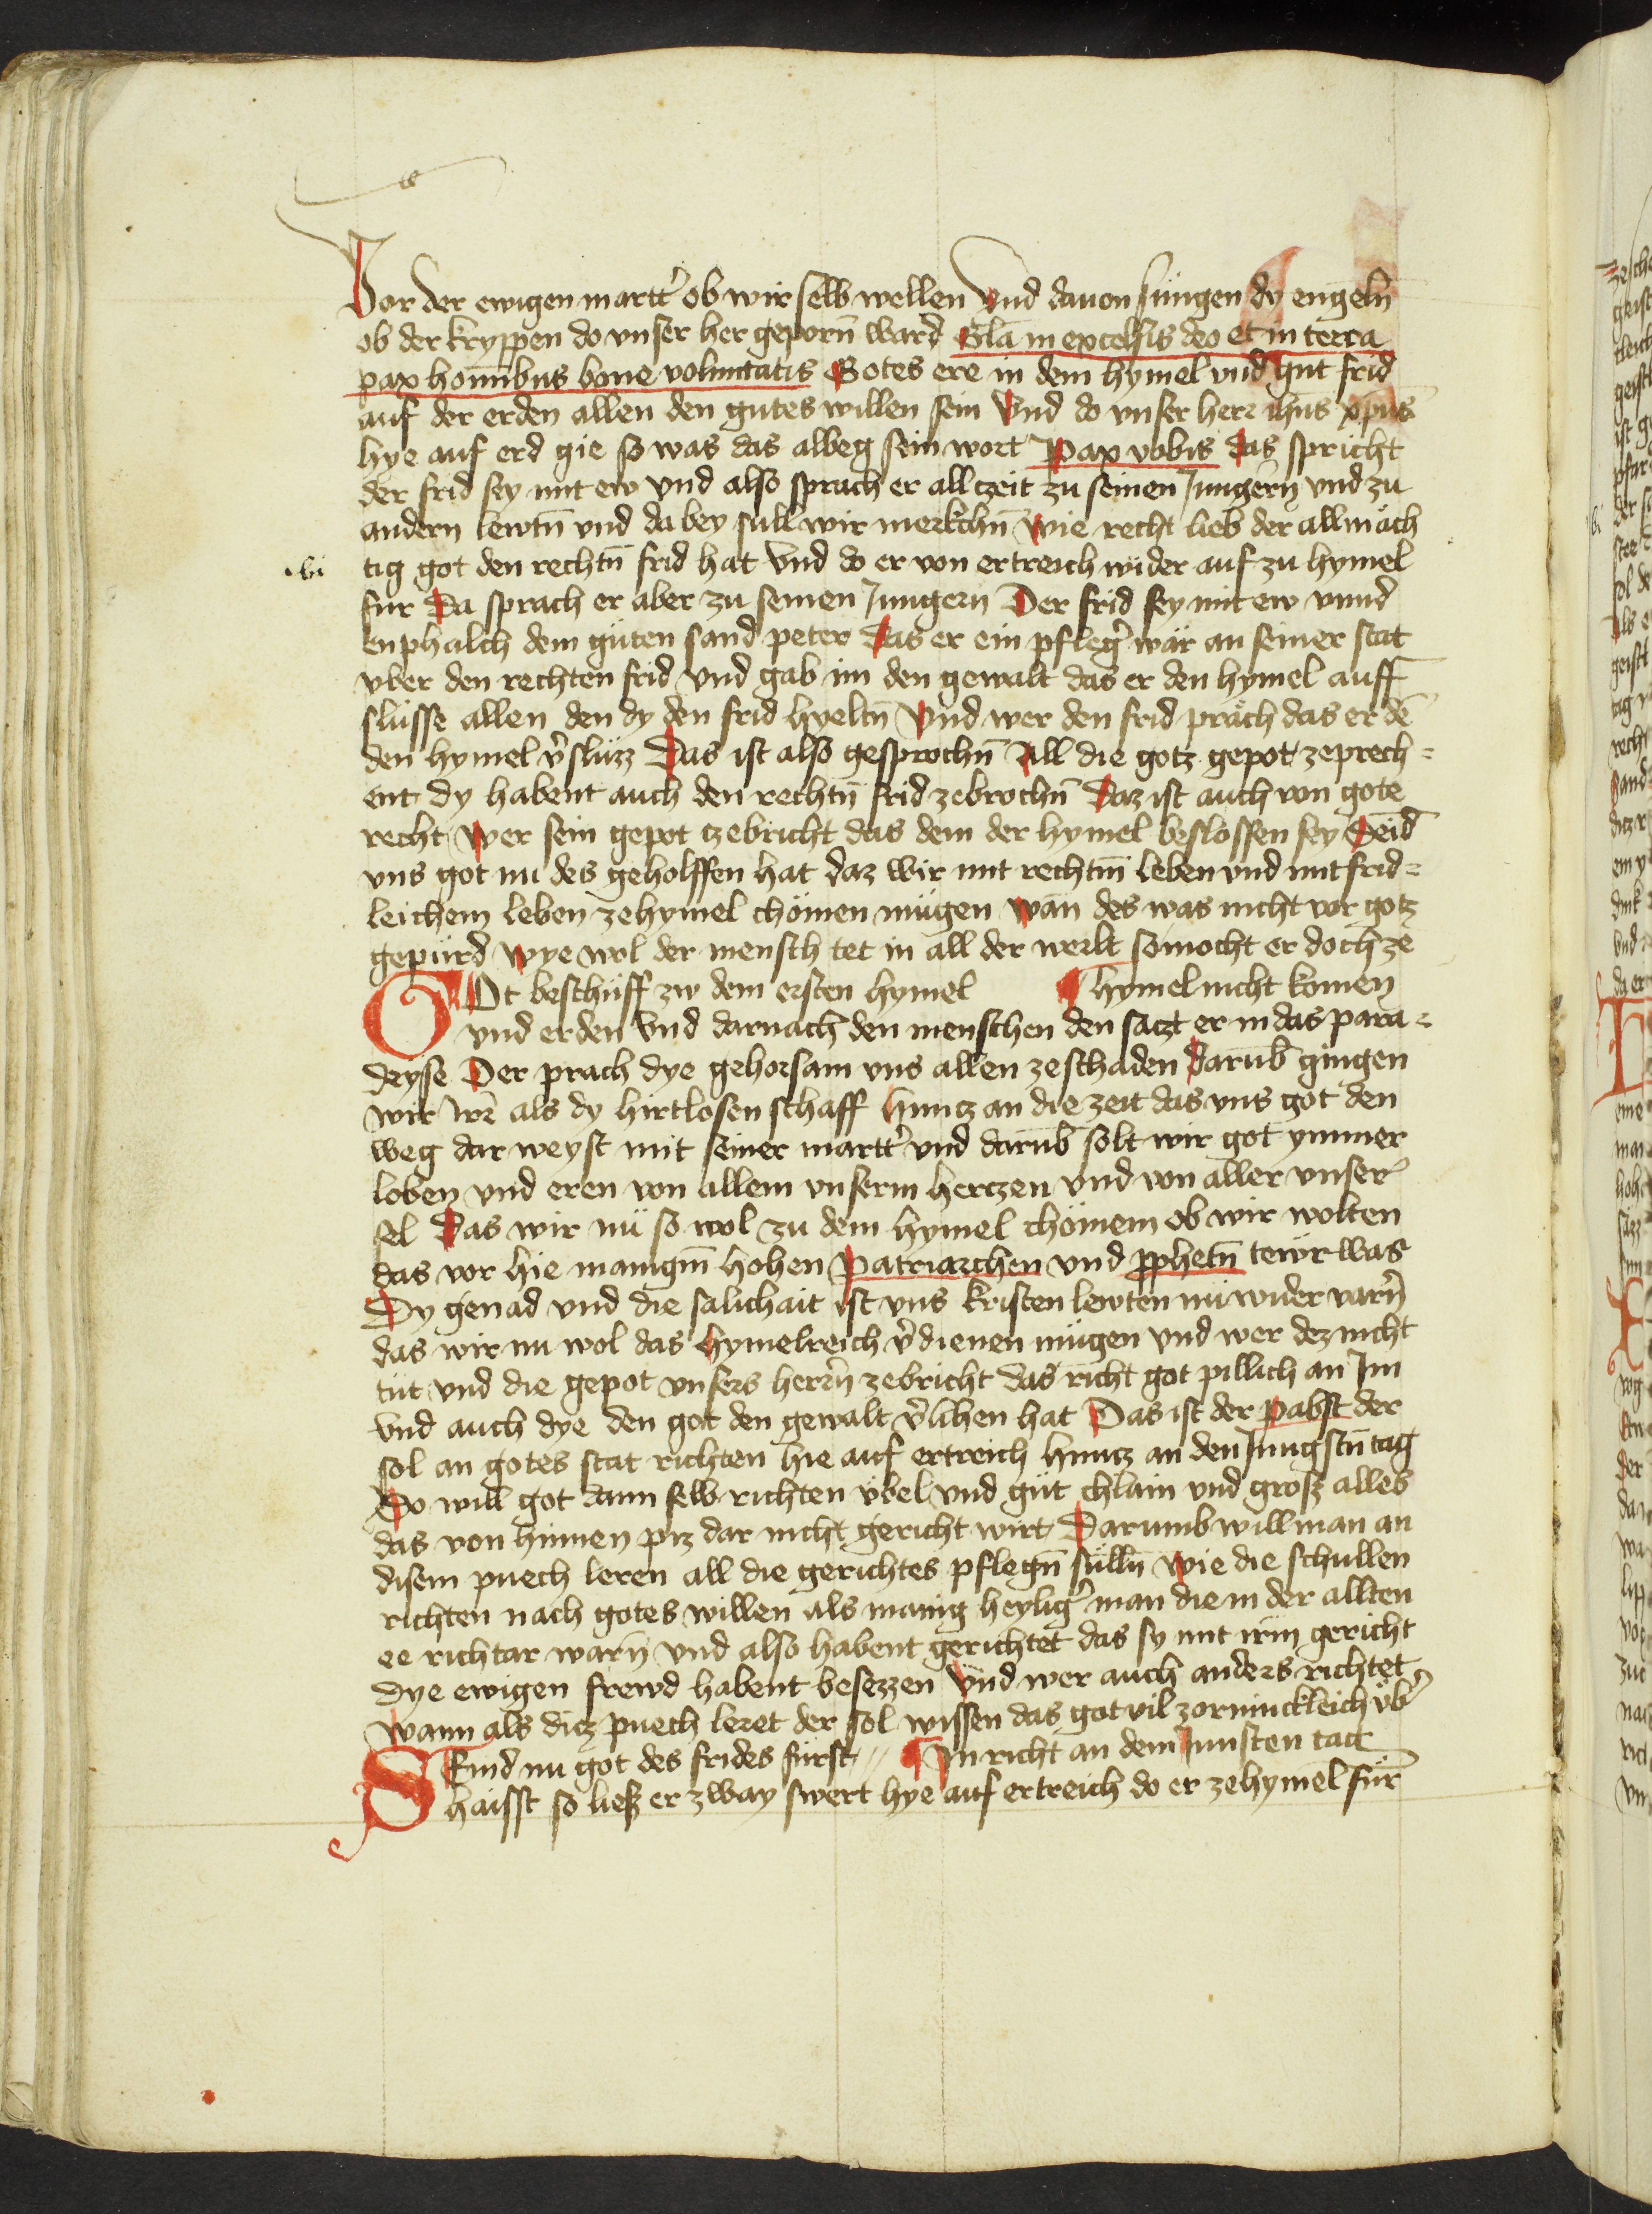 Vor der ewigen martt̉ ob wir selb wellen Vnd dauon sungen dy engeln̄
ob der kryppen do vnser her geporn̄ ward Gl̄a in excelsis deo et in terra
pax hominibus bone voluntatis Gotes ere in dem hymel vnd gut frid
auf der erden allen den gutes willen sein Vnd do vnser herr ih̄us xp̄us
hye auf erd gie so was das albeg sein wort Pax vobis das spricht
der frid sey mit ew vnd also sprach er allczeit zu seinen Jungern̄ vnd zu
andern lewtn̄ vnd da bey sull wir merkchn̄ wie recht lieb der allmäch
.vi. tig got den rechtn̄ frid hat Vnd do er von ertreich wider auf zu hymel
fur Da sprach er aber zu seinen Jungern Der frid sey mit ew vnnd
enphalch dem güten sand peter das er ein pfleg̉ wär an seiner stat
vber den rechten frid vnd gab im den gewalt das er den hymel auff
slüsse allen den dy den frid hyeltn̄ Vnd wer den frid präch das er dē
den hymel v̉slüzz Das ist also gesprochn̄ All die gotz gepot zeprech=
ent dy habent auch den rechtn̄ frid zebrochn̄ Daz ist auch von gote
recht wer sein gepot zebricht das dem der hymel beslossen sey Seid
vns got nu des geholffen hat daz wir mit rechtm̄ leben vnd mit frid=
leichem leben zehymel chömen mügen wan̄ des was nicht vor gotz
gepürd wye wol der mensch tet in all der werlt so mocht er doch ze
GOt beschüff zw dem ersten hymel ¶ hymel nicht komen
vnd erden Vnd darnach den menschen den saczt er in das para=
deyse Der prach dye gehorsam vns allen zeschaden Darūb gingen
wir irr̄ als dy hirtlosen schaff huncz an die zeit das vns got den
weg dar weyst mit seiner martt̉ vnd darūb solt wir got ymmer
loben vnd eren von allem vnserm hertzen vnd von aller vnser
sel Das wir nü so wol zu dem hymel chömem ob wir wolten
das vor hie manigm̄ hohen Patriarchen vnd p̱phetn̄ tewr was
Dy genad vnd die salichait ist vns kristen lewten nu wider varn̄
das wir nu wol das hymelreich v̉dienen mügen vnd wer dez nicht
tüt vnd die gepot vnsers herrn̄ zebricht das richt got pillich an Im
vnd auch dye den got den gewalt v̉lihen hat Das ist der pabst der
sol an gotes stat richten hie auf ertreich huncz an den Jungstn̄ tag
Do will got dann selb richten vbel vnd güt chlain vnd grosz alles
das von hinnen piz dar nicht gericht wirt Darumb will man an
disem puech leren all die gerichtes pflegn̄ sülln̄ wie die schullen
richten nach gotes willen als manig heylig̉ man die in der allten
ee richtar warn̄ vnd also habent gerichtet das sy mit irm̄ gericht
dye ewigen frewd habent besezzen Vnd wer auch anders richtet
wann als dicz puech leret der sol wissen das got vil zorninckleich vb̉
SEind nu got des frides fürst // ¶ In richt an dem Junsten tack
haisst so liesz er zway swert hye auf ertreich do er zehymel für